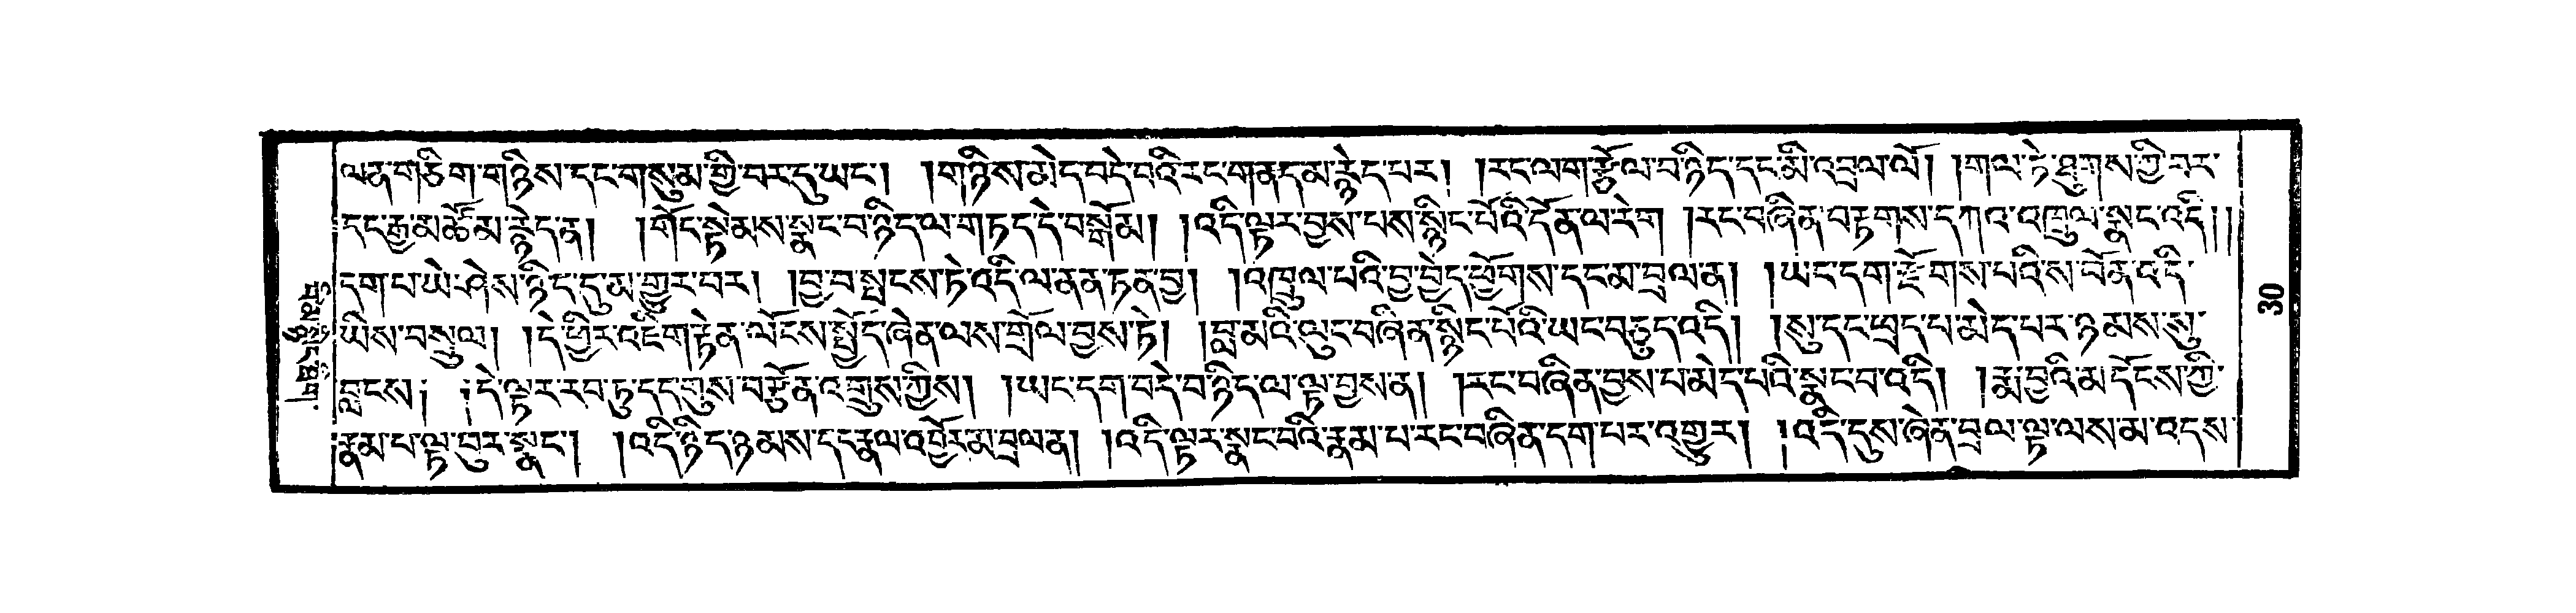 ལན་གཅིག་གཉིས་དང་གསུམ་གྱི་བར་དུ་ཡང་། །གཉིས་མེད་བདེ་བའི་རང་གནད་མ་རྙེད་པར། །རང་ལག་རྩོལ་བ་ཉིད་དང་མི་འབྲལ་ལོ། །གལ་ཏེ་ཐུགས་ཀྱི་བར་
དང་རྒྱ་མཚོམ་རྙེད་ན། །གོང་སྟེམས་སྣང་བ་ཉིད་ལ་གཏད་དེ་བསྒོམ། །འདི་ལྟར་བྱས་པས་སྙིང་པོའི་དོན་ལ་རེག །རང་བཞིན་བརྟགས་དཀའ་འཁྲུལ་སྣང་འདི།།
དག་པ་ཡེ་ཤེས་ཉིད་དུ་མ་གྱུར་བར། །བྱ་བ་སྤངས་ཏེ་འདི་ལ་ནན་ཏན་བྱ། །འཁྲུལ་པའི་བྱ་བྱེད་ཕྱོགས་དང་མ་བྲལ་ན། །ཡང་དག་རྫོགས་པའི་ས་བོན་འདི་
ཡིས་བསྲུལ། །དེ་ཕྱིར་འཇིག་རྟེན་ལོངས་སྤྱོད་ཞེན་ལས་གྲོལ་བྱས་ཏེ། །བླ་མའི་ལུང་བཞིན་སྙིང་པོའི་ཡང་བཅུད་འདི། །སུ་དང་ཕྲད་པ་མེད་པར་ཉམས་སུ་
བླངས། །དེ་ལྟར་རབ་ཏུ་དད་གུས་བརྩོན་འགྲུས་ཀྱིས། །ཡང་དག་བདེ་བ་ཉིད་ལ་ལྟ་བྱས་ན། །རང་བཞིན་བྱས་པ་མེད་པའི་སྣང་བ་འདི། །རྨ་བྱའི་མ་དོངས་ཀྱི་
རྣམ་པ་ལྟ་བུར་སྣང་། །འདི་ཉིད་ཉམས་ད་རྣལ་འབྱོར་མ་བྲལ་ན། །འདི་ལྟར་སྣང་བའི་རྣམ་པ་རང་བཞིན་དག་པར་འགྱུར། །འདི་དུས་ཞེན་བྲལ་ལྟ་ལས་མ་འདས་